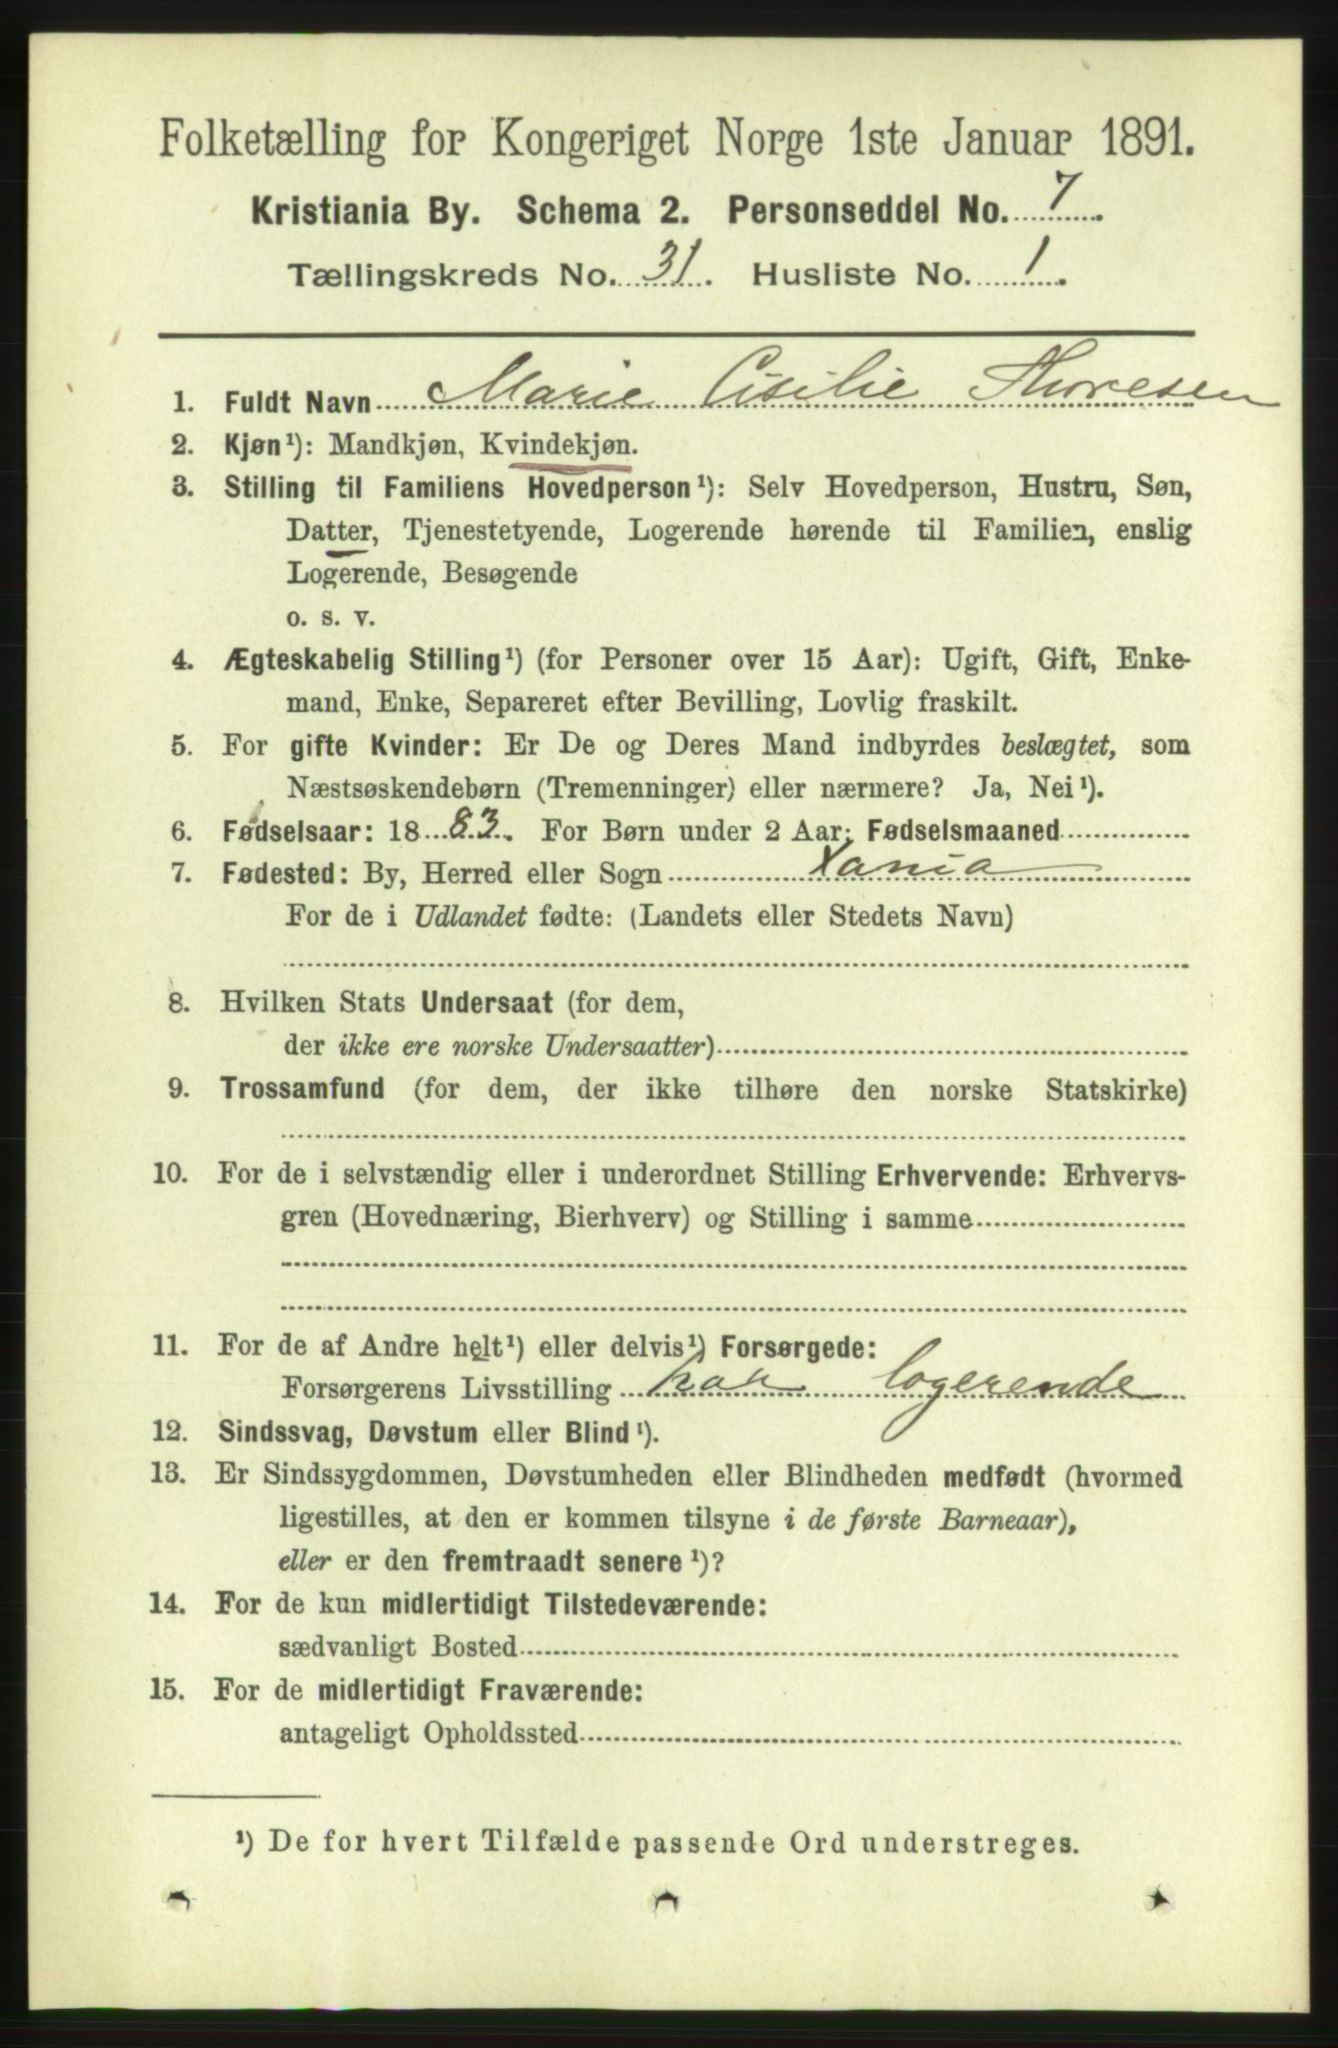 Folketælling for Kongeriget Norge 1ste Januar 1891.
Kristiania By. Schema 2. Personseddel No. 7.
Tællingskreds No. 31. Husliste No. 1.
1. Fuldt Navn Marie Cisilie Thoresen
2. Kjøn¹): Mandkjøn, Kvindekjøn.
3. Stilling til Familiens Hovedperson¹): Selv Hovedperson, Hustru, Søn,
Datter, Tjenestetyende, Logerende hørende til Familien, enslig
Logerende, Besøgende
o. s. v.
4. Ægteskabelig Stilling¹) (for Personer over 15 Aar): Ugift, Gift, Enke-
mand, Enke, Separeret efter Bevilling, Lovlig fraskilt.
5. For gifte Kvinder: Er De og Deres Mand indbyrdes beslægtet, som
Næstsøskendebørn (Tremenninger) eller nærmere? Ja, Nei¹).
6. Fødselsaar: 1883. For Børn under 2 Aar: Fødselsmaaned
7. Fødested: By, Herred eller Sogn Xania
For de i Udlandet fødte: (Landets eller Stedets Navn)
8. Hvilken Stats Undersaat (for dem,
der ikke ere norske Undersaatter)
9. Trossamfund (for dem, der ikke tilhøre den norske Statskirke)
10. For de i selvstændig eller i underordnet Stilling Erhvervende: Erhvervs-
gren (Hovednæring, Bierhverv) og Stilling i samme
11. For de af Andre helt¹) eller delvis¹) Forsørgede:
Forsørgerens Livsstilling har logerende
12. Sindssvag, Døvstum eller Blind¹).
13. Er Sindssygdommen, Døvstumheden eller Blindheden medfødt (hvormed
ligestilles, at den er kommen tilsyne i de første Barneaar),
eller er den fremtraadt senere¹)?
14. For de kun midlertidigt Tilstedeværende:
sædvanligt Bosted
15. For de midlertidigt Fraværende:
antageligt Opholdssted
¹) De for hvert Tilfælde passende Ord understreges.